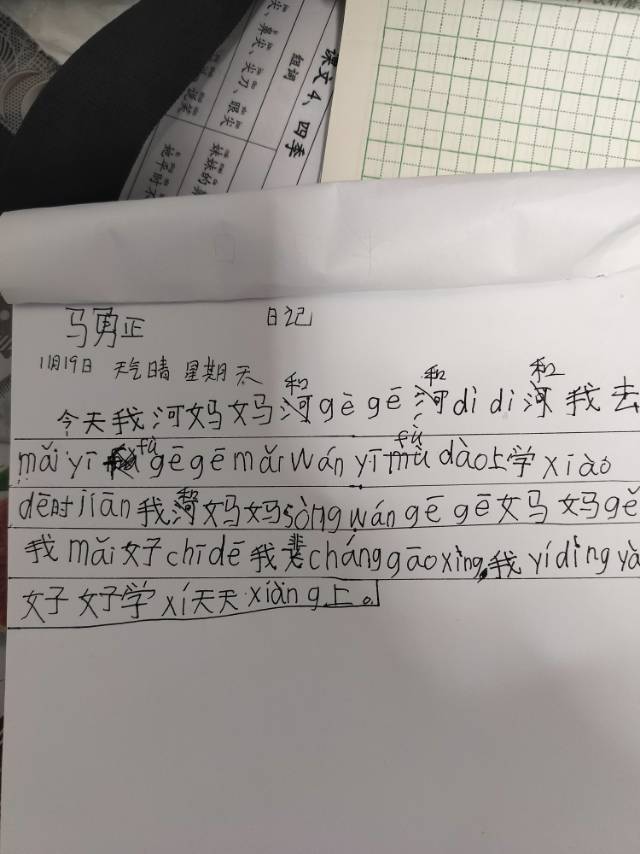 课文4、四季
组词
尖、鼻尖、尖刀、眼尖
妹妹的
马勇正
日记
11月19日 天气晴 星期天
和 和 和
今天我河妈妈河gè gē河dì di河我去
fú fú
mǎi yī gēgē mǎi wán yī mù dào上学xiào
dē时jiān我河妈妈sòng wán gē gē女马妈gě
我mǎi女子chīdē我非cháng gāoxìng,我yídìng yà
女子女子学xí天天xiàng上。